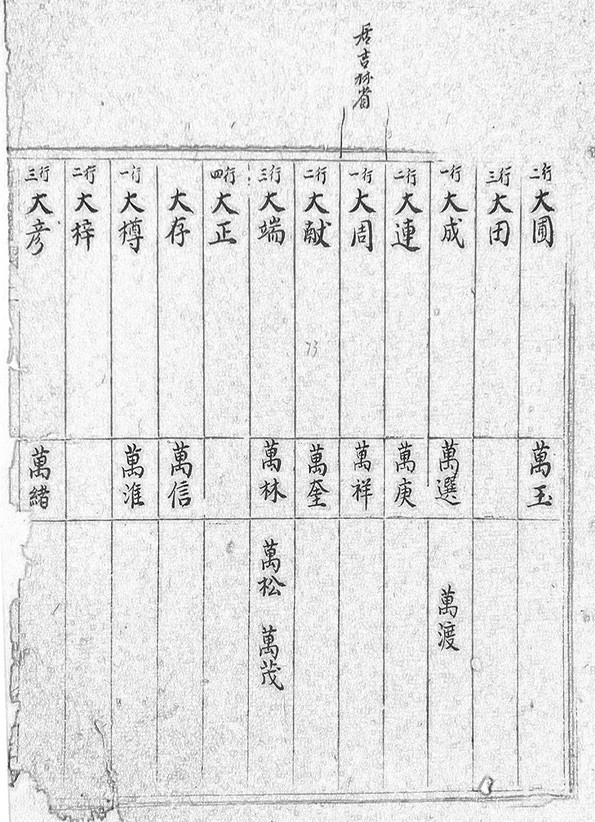 居吉林省
二行 大圃 萬玉
三行 大田
一行 大成 萬選 萬渡
二行 大連 萬庚
一行 大周 萬祥
二行 大猷 萬奎
三行 大端 萬林 萬松 萬茂
四行 大正
大存 萬信
一行 大樽 萬淮
二行 大梓
三行 大彦 萬緒
73